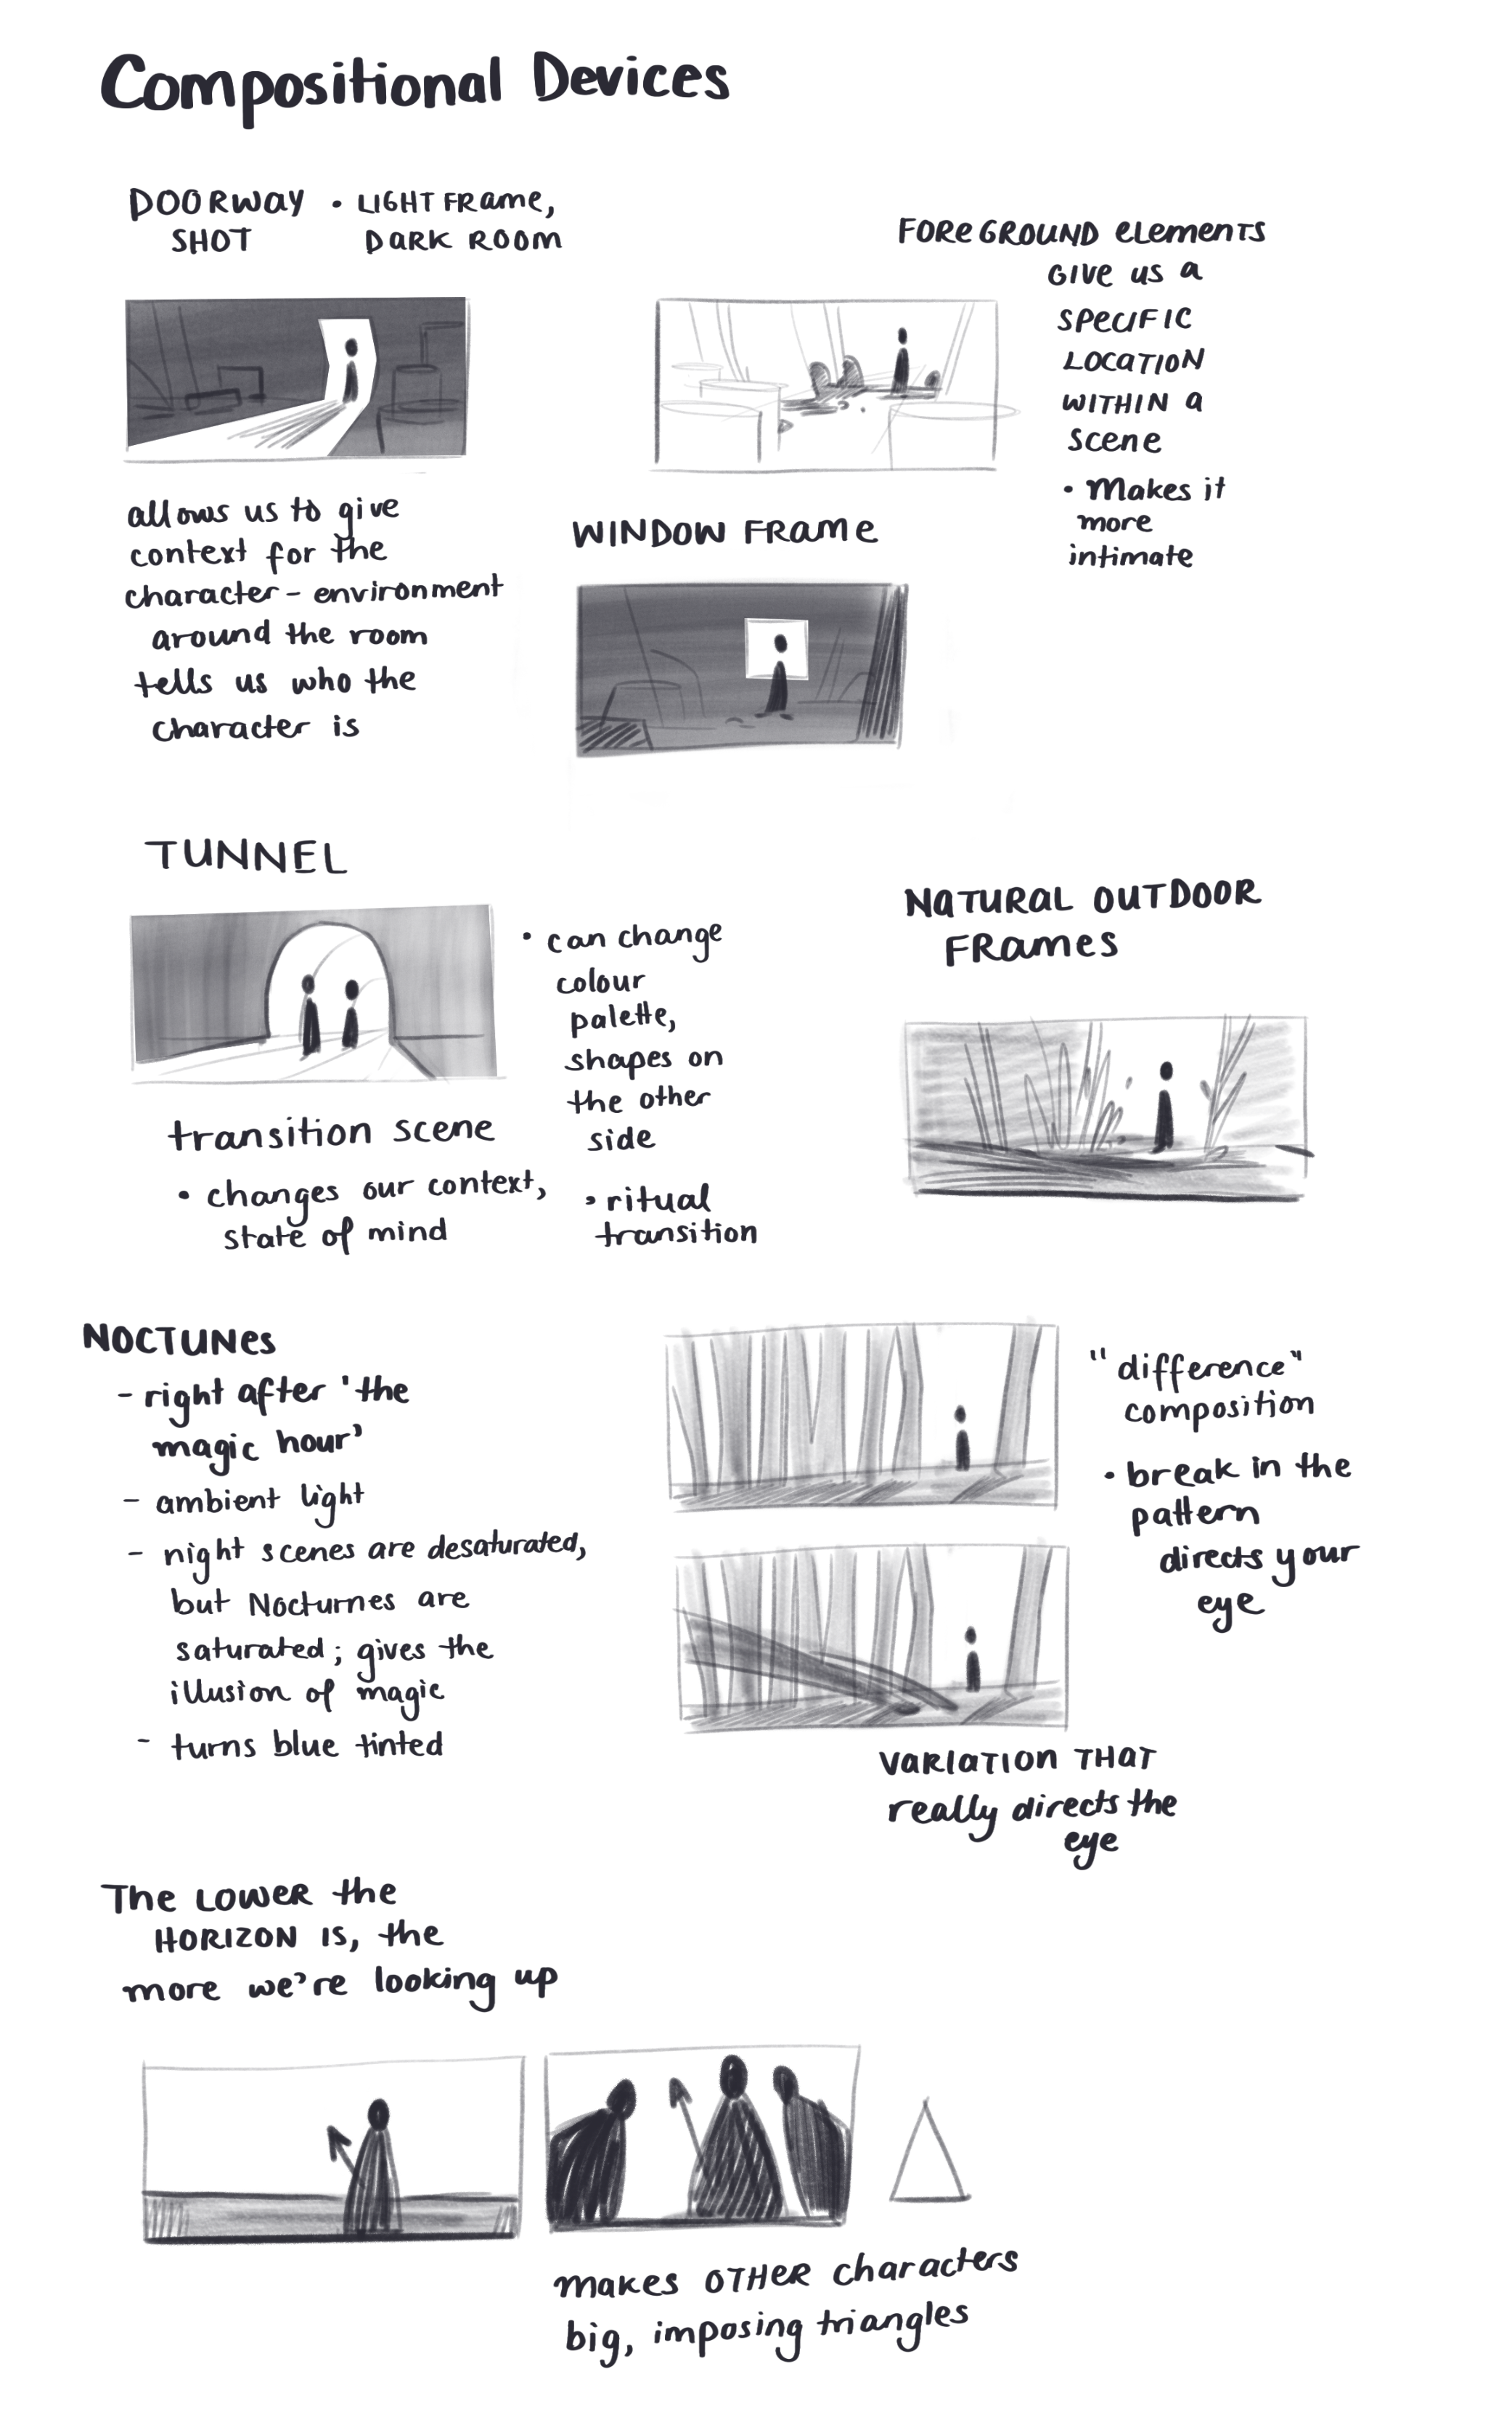 Compositional Devices
DOORWAY
SHOT
• LIGHT FRame,
DaRK ROOM
allows us to give
context for the
character - environment
around the room
tells us who the
character is
FOReGROUND elements
Give us a
specific
Location
within a
scene
• Makes it
more
intimate
WINDOW FRame
TUNNEL
transition scene
• changes our context,
state of mind
• can change
colour
palette,
shapes on
the other
side
• ritual
transition
NaTURAL OUTDOOR
FRames
NOCTUNes
- right after 'the
magic hour'
- ambient light
- night scenes are desaturated,
but Nocturnes are
saturated; gives the
illusion of magic
- turns blue tinted
"difference"
composition
• break in the
pattern
directs your
eye
VaRIATION THAT
really directs the
eye
The LOWER the
HORIZON IS, the
more we're looking up
makes OTHER characters
big, imposing triangles